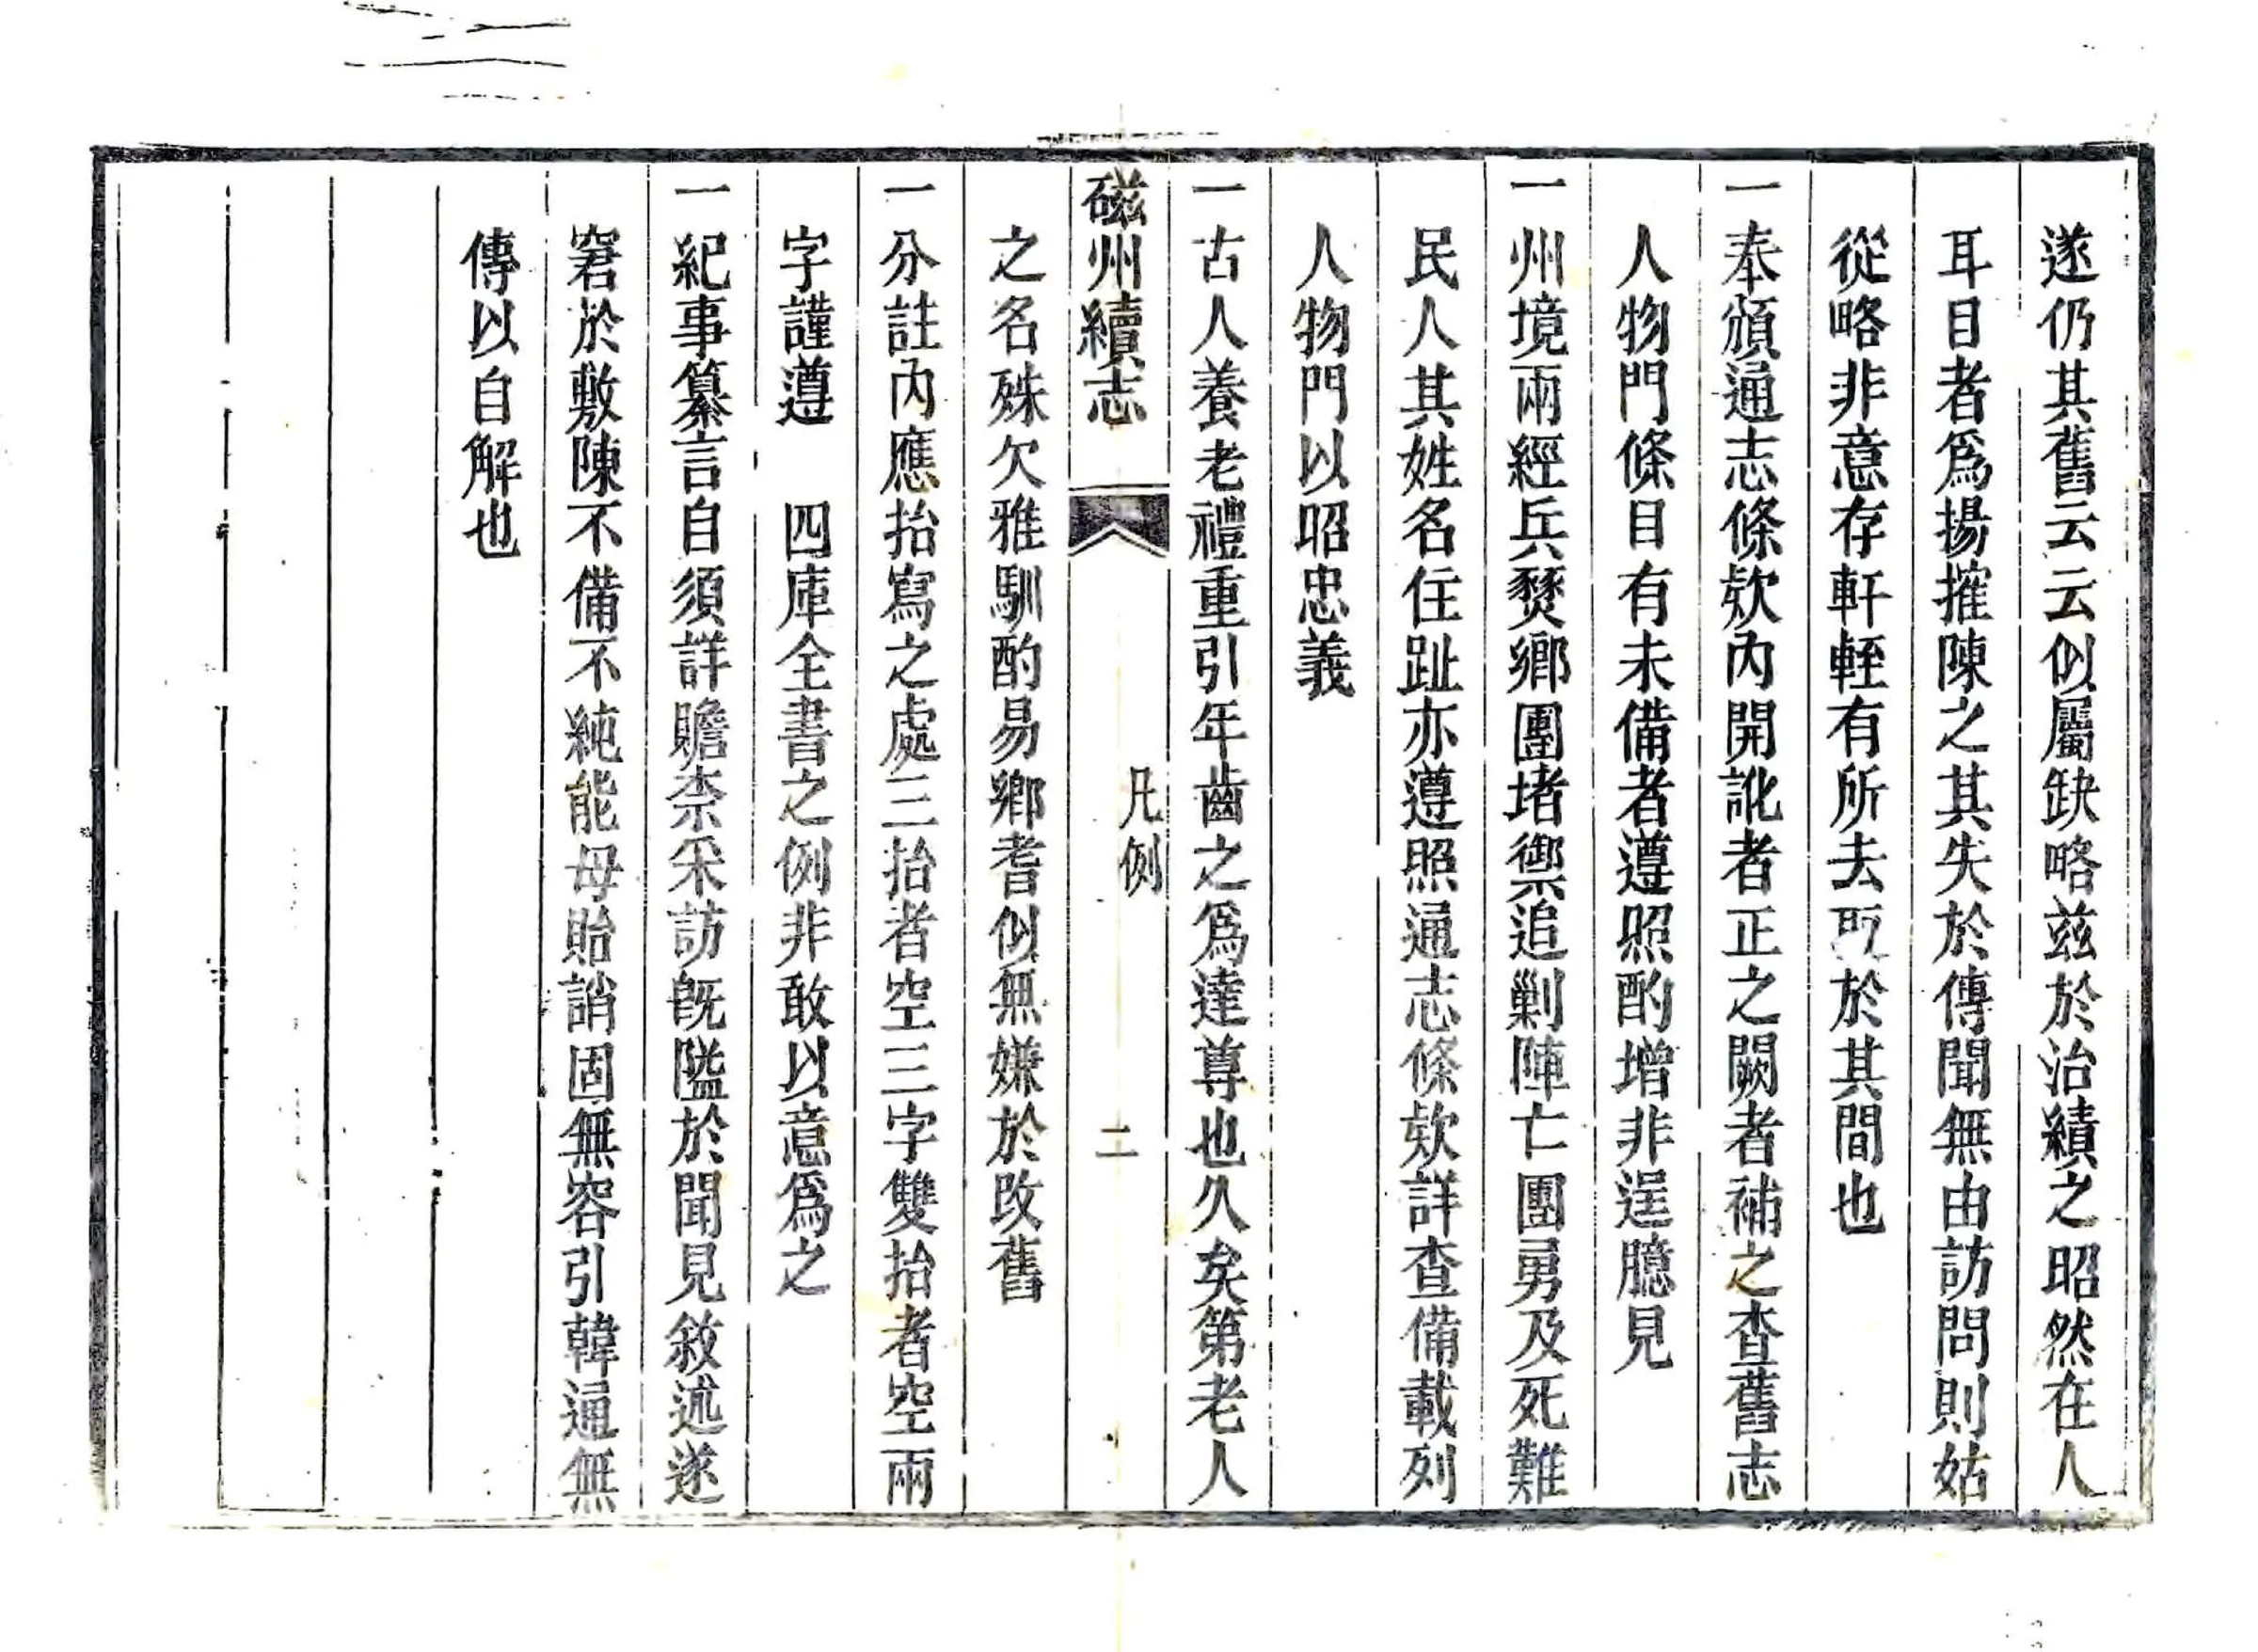 遂仍其舊云云似屬缺略兹於治績之昭然在人
耳目者爲揚搉陳之其失於傳聞無由訪問則姑
從略非意存軒輊有所去取於其間也
一奉頒通志條欵內開訛者正之闕者補之查舊志
人物門條目有未備者遵照酌增非逞臆見
一州境兩經兵燹鄉團堵禦追剿陣亡團勇及死難
民人其姓名住趾亦遵照通志條欵詳查備載列
人物門以昭忠義
一古人養老禮重引年齒之爲達尊也久矣第老人
磁州續志
凡例
二
之名殊欠雅馴酌易鄉耆似無嫌於改舊
一分註內應抬寫之處三抬者空三字雙抬者空兩
字謹遵 四庫全書之例非敢以意爲之
一紀事纂言自須詳贍柰采訪旣隘於聞見敘述遂
窘於敷陳不備不純能毋貽誚固無容引韓通無
傳以自解也